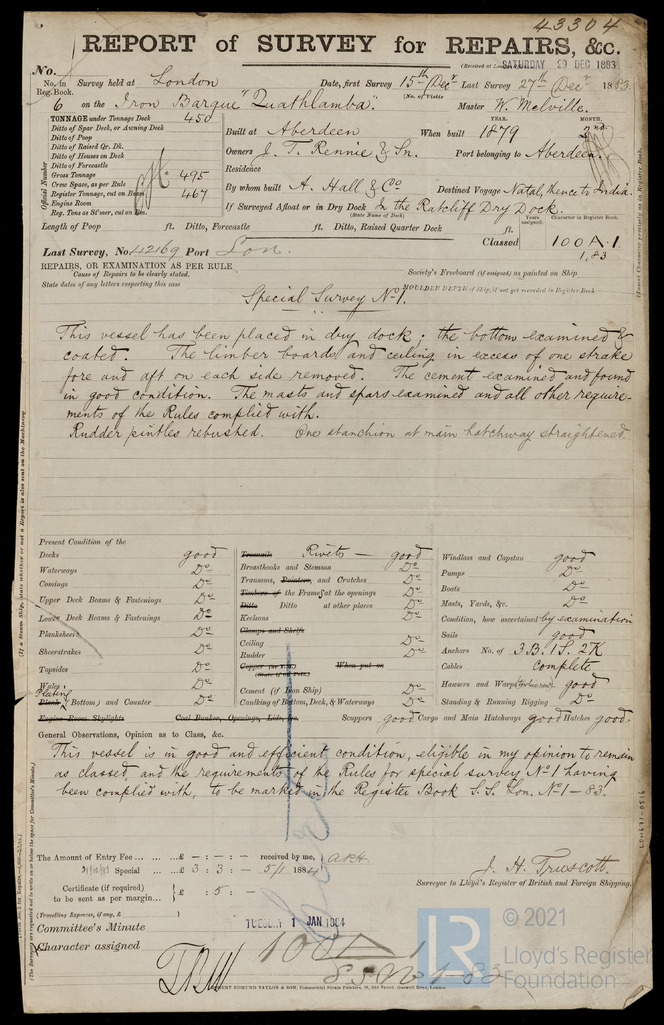 43304
REPORT of SURVEY for REPAIRS, &c.
SATURDAY 29 DEC 1883
No.
No. in Reg. Book. Survey held at London Date, first Survey 15th Decr Last Survey 27th Decr 1883
(No. of Visits
6 on the Iron Barque "Quathlamba". Master W. Melville.
TONNAGE under Tonnage Deck 450
Ditto of Spar Deck, or Awning Deck
Ditto of Poop
Ditto of Raised Qr. Dk.
Ditto of Houses on Deck
Ditto of Forecastle
Gross Tonnage 495
Crew Space, as per Rule
Register Tonnage, cut on Beam 467
Engine Room
Reg. Tons as St'mer, cut on Bm.
Official Number
YEAR. MONTH.
Built at Aberdeen When built 1879 2nd
Owners J. T. Rennie & Sn. Port belonging to Aberdeen.
Residence
By whom built A. Hall & Co Destined Voyage Natal, thence to India.
If Surveyed Afloat or in Dry Dock In the Ratcliff Dry Dock.
(State Name of Dock)
Years assigned. Character in Register Book.
Length of Poop ft. Ditto, Forecastle ft. Ditto, Raised Quarter Deck ft.
Classed 100 A.1
1,83
Last Survey, No. 42169 Port Lon.
REPAIRS, OR EXAMINATION AS PER RULE
Cause of Repairs to be clearly stated.
State dates of any letters respecting this case
Society's Freeboard (if assigned) as painted on Ship
MOULDED DEPTH of Ship, if not yet recorded in Register Book
Special Survey No 1.
This vessel has been placed in dry dock; the bottom examined &
coated. The limber boards and ceiling in excess of one strake
fore and aft on each side removed. The cement examined and found
in good condition. The masts and spars examined and all other require-
ments of the Rules complied with.
Rudder pintles rebushed. One stanchion at main hatchway straightened.
Present Condition of the
Decks good
Waterways Do
Comings Do
Upper Deck Beams & Fastenings Do
Lower Deck Beams & Fastenings Do
Planksheers Do
Sheerstrakes Do
Topsides Do
Wales Do
Plating
Plank (Bottom) and Counter Do
Engine Room Skylights Coal Bunker, Openings, Lids, &c.
Treenails Rivets — good
Breasthooks and Stemson Do
Transoms, Pointers, and Crutches Do
Timbers of the Frames at the openings Do
Ditto Ditto at other places Do
Keelsons Do
Clamps and Shelfs
Ceiling Do
Rudder Do
Copper (or Y.M.) When put on
(State if on Felt.)
Cement (if Iron Ship) Do
Caulking of Bottom, Deck, & Waterways Do
Scuppers good Cargo and Main Hatchways good Hatches good.
Windlass and Capstan good
Pumps Do
Boats Do
Masts, Yards, &c. Do
Condition, how ascertained by examination
Sails good
Anchors No. of 3B. 1S. 2K
Cables complete
Hawsers and Warps good
Standing & Running Rigging Do
General Observations, Opinion as to Class, &c.
This vessel is in good and efficient condition, eligible in my opinion to remain
as classed, and the requirements of the Rules for special survey No 1 having
been complied with, to be marked in the Register Book S.S. Lon. No 1 – 83.
The Amount of Entry Fee ... ... £ - : - : - received by me,
Special ... £ 3 : 3 : - 5/1 1884
Certificate (if required) to be sent as per margin... £ : 5 : -
(Travelling Expenses, if any, £ )
J. H. Truscott.
Surveyor to Lloyd's Register of British and Foreign Shipping.
Committee's Minute TUESDAY 1 JAN 1884
Character assigned 100 A 1
S.S. No 1-83
ROBERT EDMUND TAYLOR & SON, Commercial Steam Printers, 19, Old Street, Goswell Road, London
LR © 2021
Lloyd's Register
Foundation